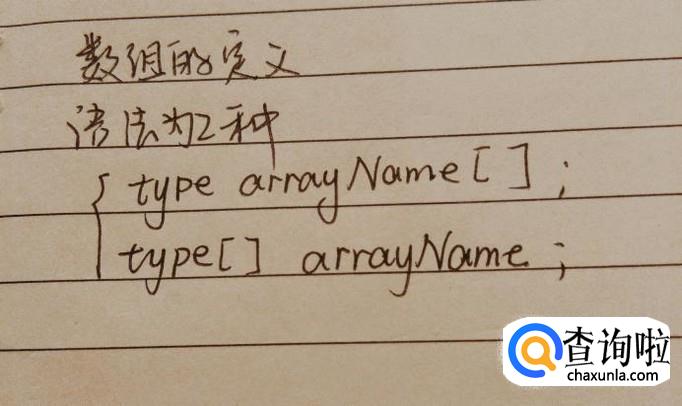 数组的定义
语法为2种
type arrayName[];
type[] arrayName;
查询啦
chaxunla.com